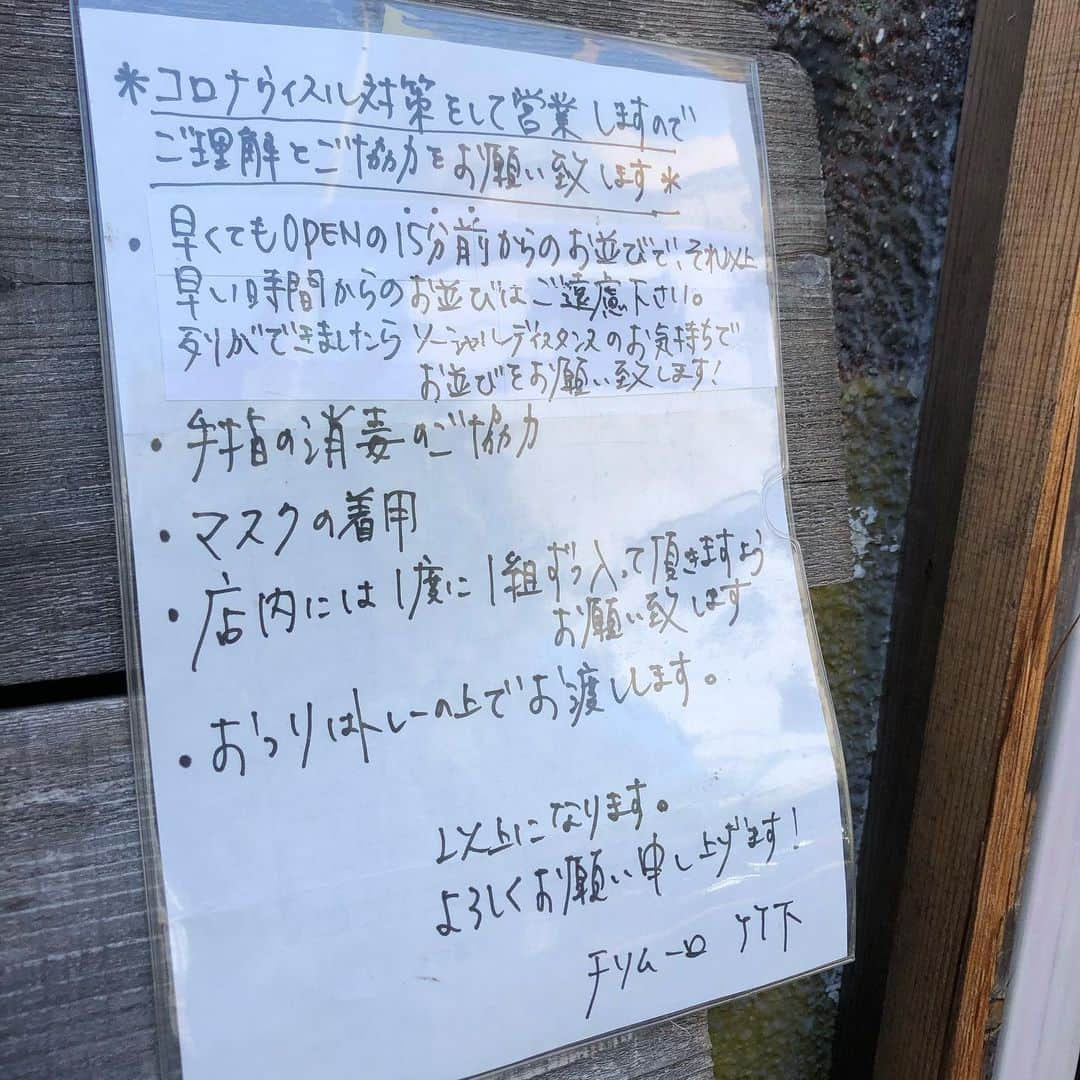 *コロナウィスル対策をして営業しますので
ご理解とご協力をお願い致します*
・早くてもOPENの15分前からのお並びで、それ以上
早い時間からのお並びはご遠慮下さい。
列ができましたらソーシャルディスタンスのお気持ちで
お並びをお願い致します!
・手指の消毒のご協力
・マスクの着用
・店内には1度に1組ずつ入って頂きますよう
お願い致します
・おつりはトレーの上でお渡しします。
以上になります。
よろしくお願い申し上げます!
チリムーロ 竹下